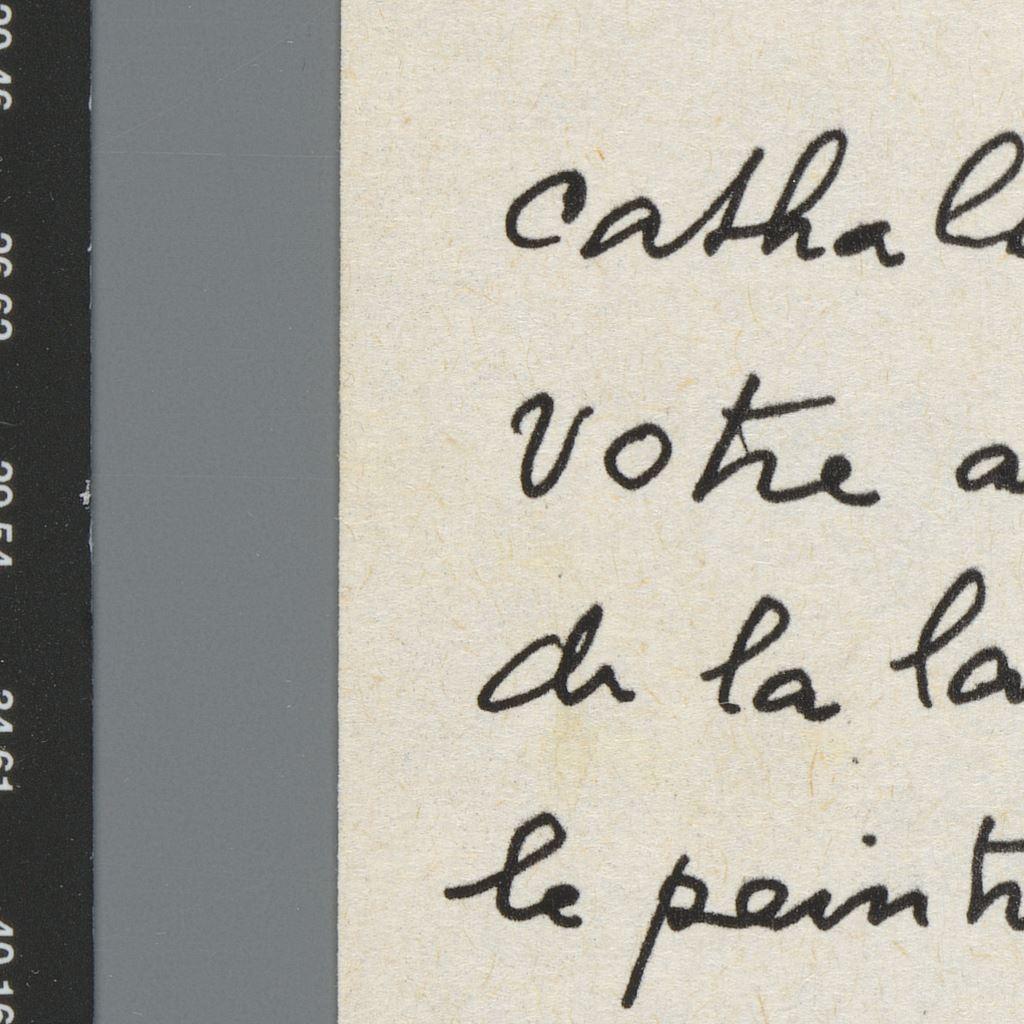 cathal
votre a
de la la
le peint